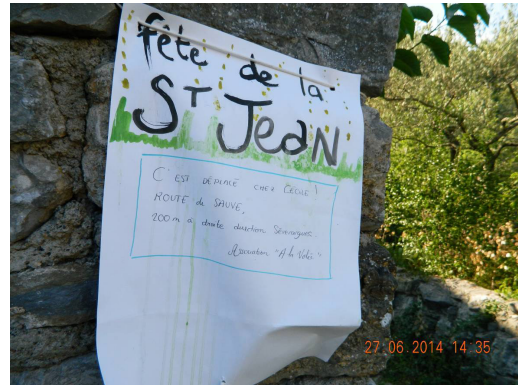 fête de la
ST JeaN
C'EST DÉPLACÉ CHEZ CÉCILE!
ROUTE de SAUVE,
200 m à droite direction
Association "A la Volée"
27.06.2014 14:35